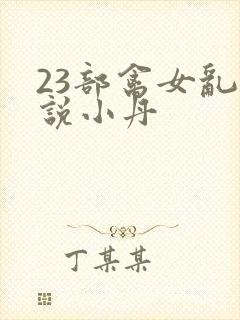 23部禽女亂
說小丹
丁某某